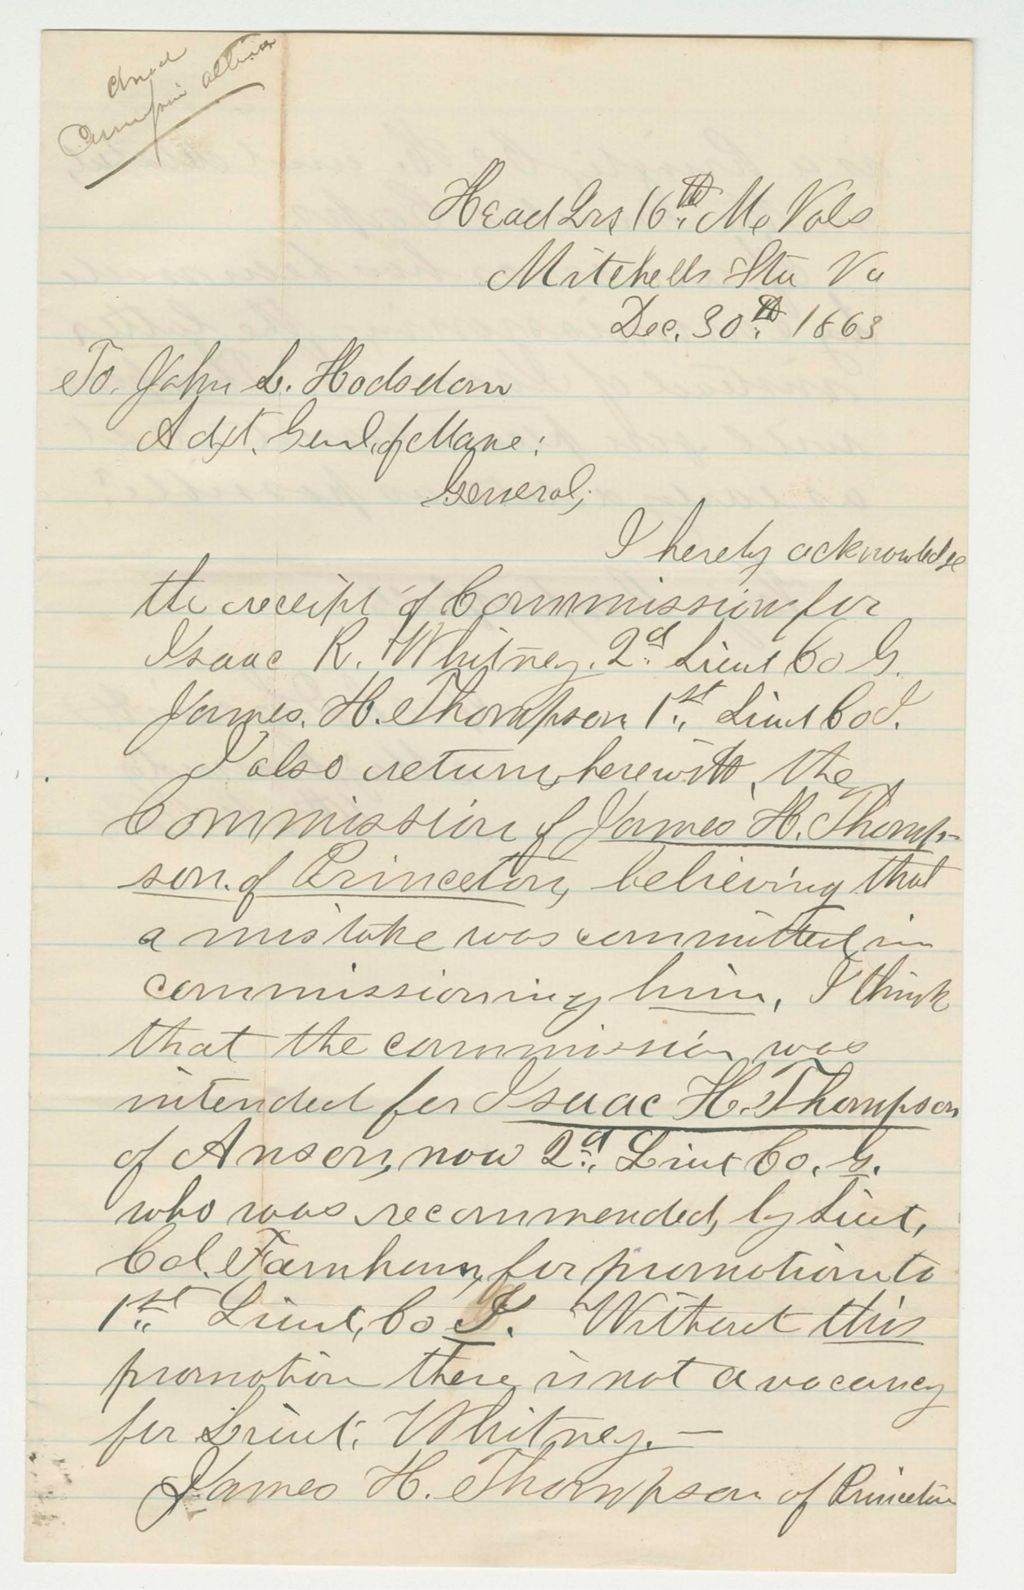 Head Qrs 16th Me Vols
Mitchells Sta Va
Dec. 30th 1863
To. John L. Hodsdon
Adjt. Genl. of Maine:
General;
I hereby acknowledge
the receipt of Commission for
Isaac R. Whitney. 2d. Lieut Co G.
James. H. Thompson 1st. Lieut Co I.
I also return, herewith, the
Commission of James H. Thomp-
son. of Princeton, believing that
a mistake was committed in
commissioning him, I think
that the commission was
intended for Isaac H. Thompson
of Anson, now 2d. Lieut Co. G.
who was recommended, by Lieut,
Col. Farnham, for promotion to
1st. Lieut, Co I. Without this
promotion there is not a vacancy
for Lieut. Whitney. —
James H. Thompson of Princeton